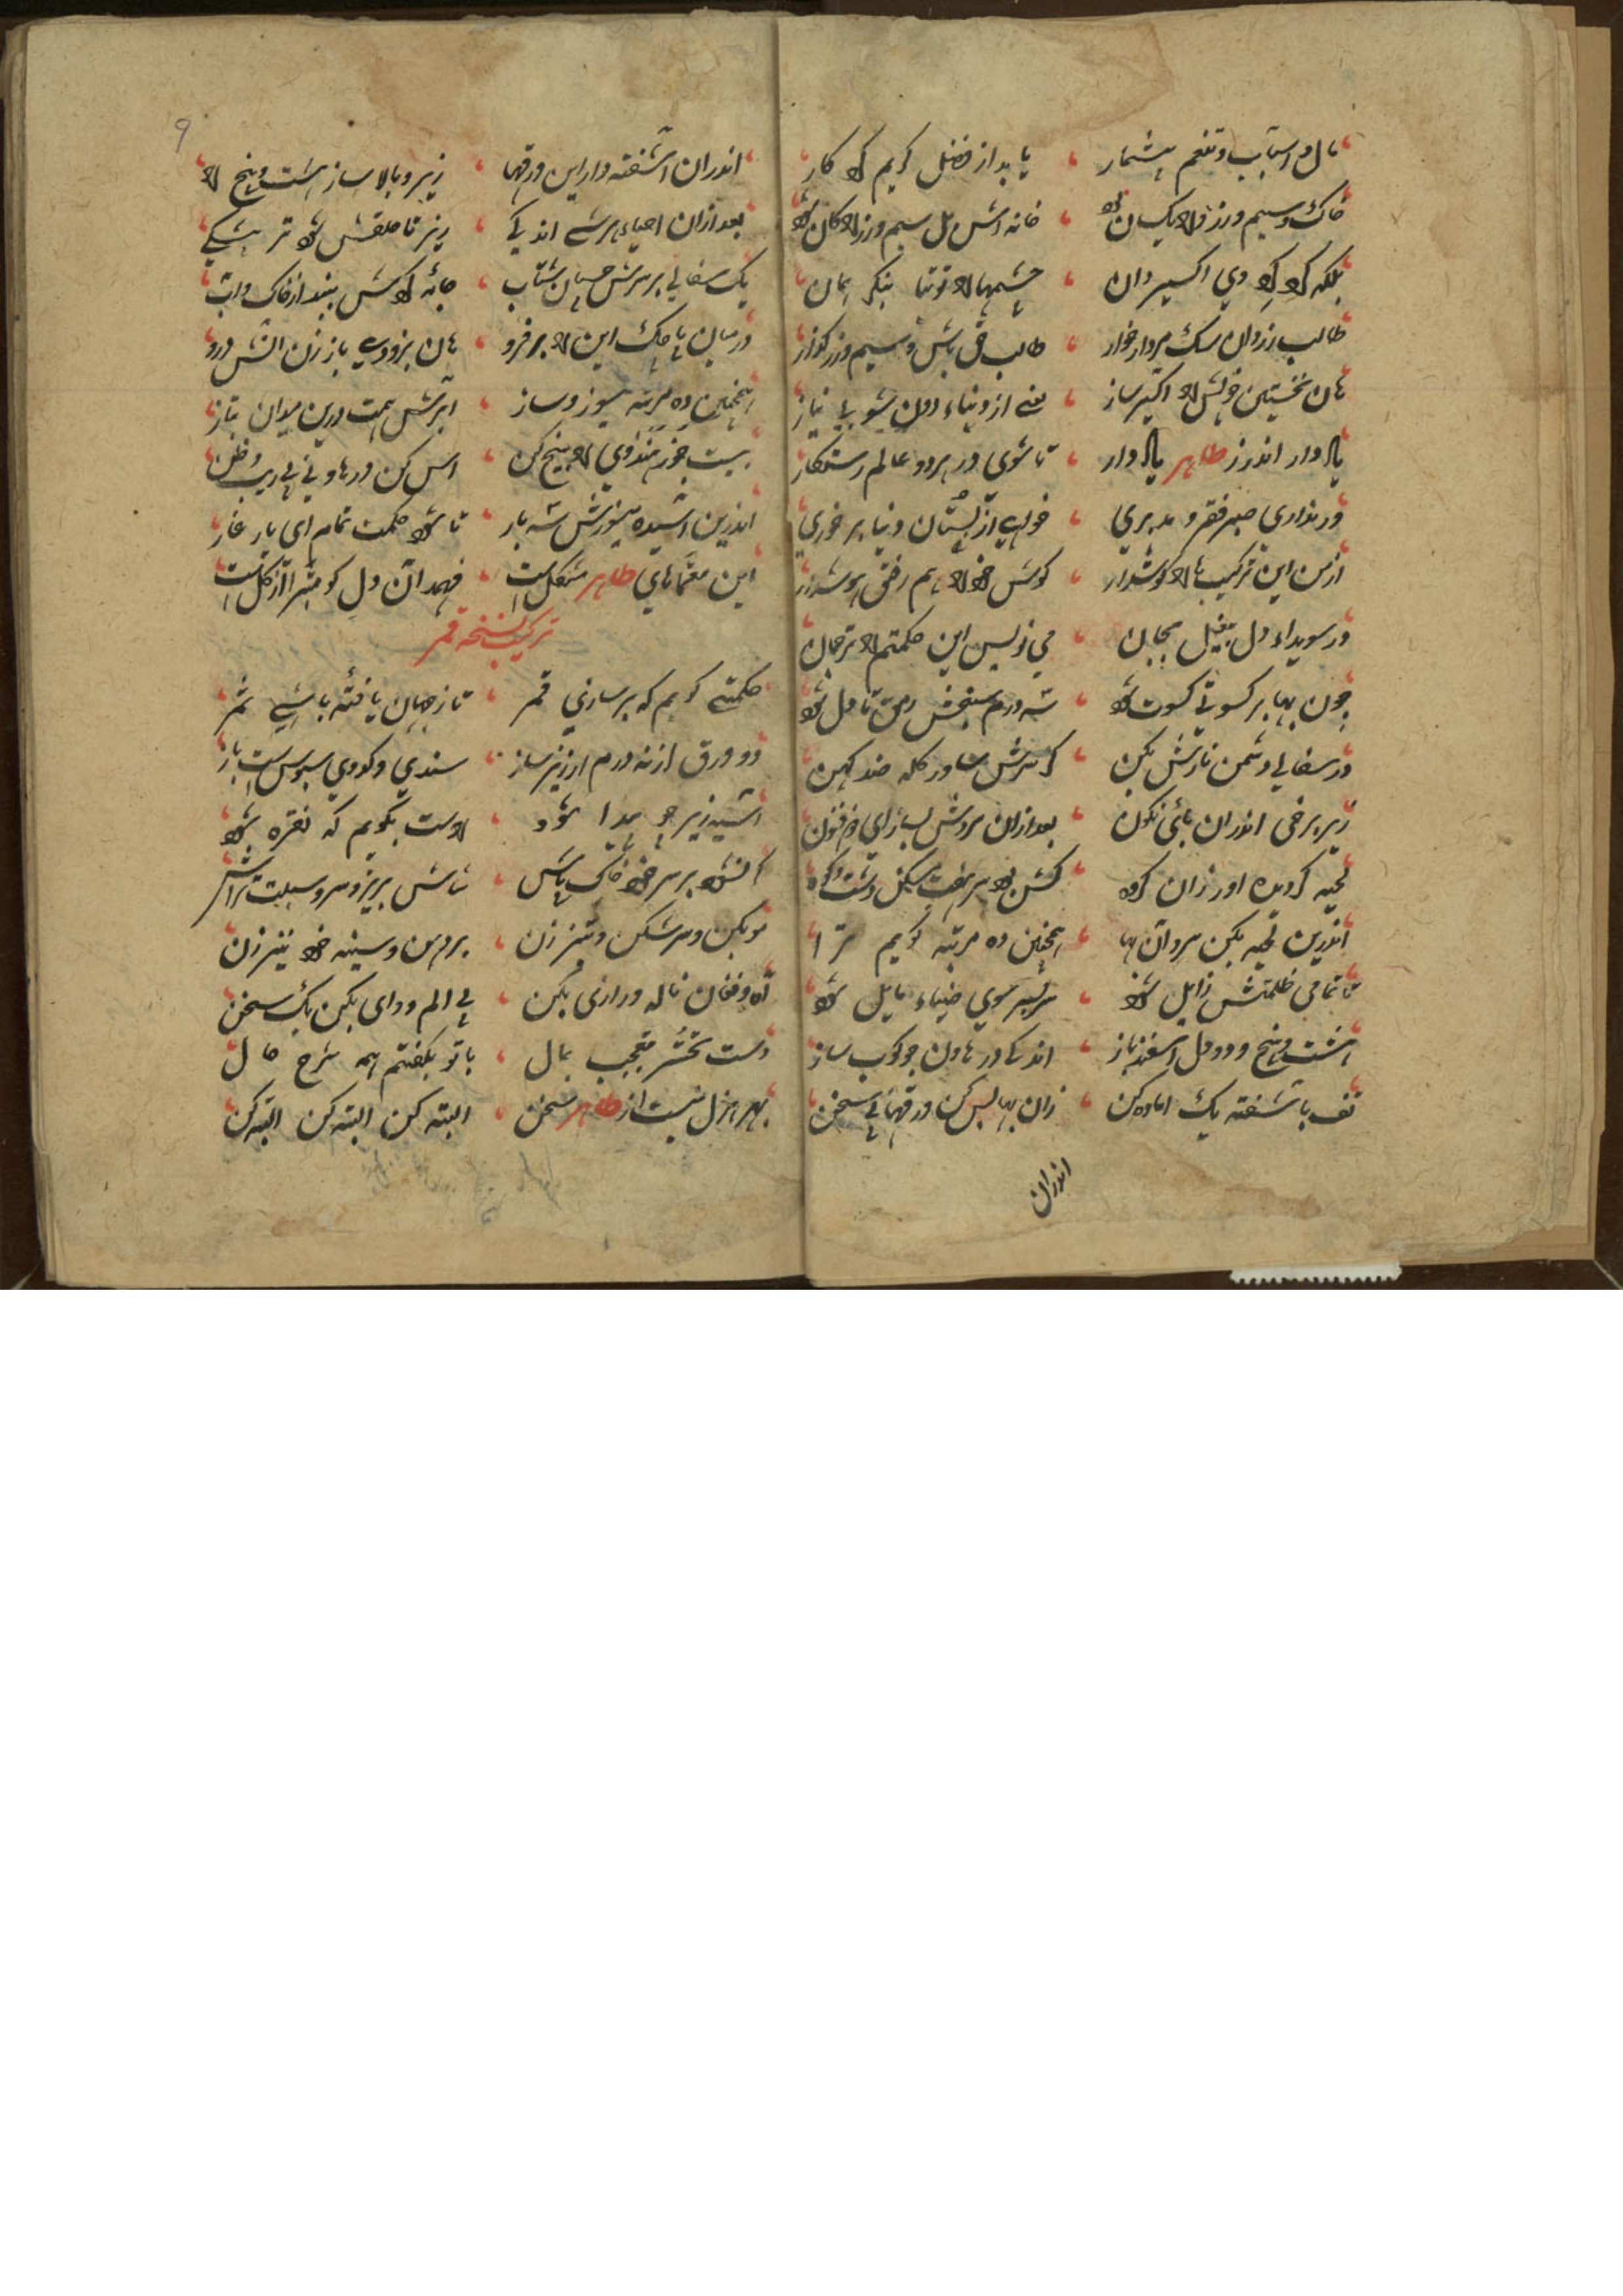 مال و اسباب و تنعم بیشمار یابد از فضل کریم کردکار
خاک و سیم و زر ورا یکسان بود خانه اش پل سیم و زر را کان بود
بلکه کرد کرد وی اکسیر دان چشمها را توتیا بنکر بمان
طالب زر دان سک مردار خوار طالب حق باش و سیم و زر کذار
هان نخستین خویش را اکسیر ساز یعنی از دنیاء دون شو بی نیاز
یاد دار اندرز طاهر یاد دار تا شوی در هر دو عالم رستکار
ور نداری صبر فقر و مدبری خواهی از بستان دنیا بر خوری
از من این ترکیب ها را کوشدار کوش خود را هم رفیق هوشدار
در سویداء دل بیغل بجان می نویس این حکمتم را ترجمان
چون بها بر کسوتی کسوت شود سه درم سیخش رمق تا دل شود
در سفالی دشمن نارش بکن کن سرش در کله ضد کهن
زیر برخی اندران بائی نکون بعد ازان سردش بساز ای ذوفنون
لحیه کردیده اور زان کروه کشن بود سر هفت سیکل دشت و کوه
اندرین لحیه بکن سردان بها همچنین ده مرتبه کویم ترا
تا تمامی ظلمتش زایل شود سر بسر سوی ضیاء مایل شود
هشت و پنج و دو دل اسفند باز اندکی در هاون چو کوب ساز
تف باشفته یک اماده کن زان بها لیس کن ورقها بی سخن
اندران
اندران اشفته دار این ورقها زیر و بالا ساز هشت و پنج را
بعد ازان احیاء هر شی اندکی ریز تا حلقش شود تر بیشکی
یک سفالی بر سرش چسپان شتاب جائه کردش بند از خاک و اب
در میان پاچک این را بر فرو هان بزودی باز زن اتش درو
همچنین ده مرتبه میسوز و ساز ابرش همت درین میدان بتاز
بیست جوزم هندوی را و پنج کن اس کن در هاونی بی ریب و ظن
اندرین اشیده میسوزش سه بار تا شود حکمت تمام ای یار غار
این معماهای طاهر مشکل است فهمد ان دل کو مبرا از کل است
ترکیب نسخه قمر
حکمتی کویم که بر سازی قمر تا ز جهان یافته باشی ثمر
دو ورق از نه درم ارزیز ساز سندی و کودوی سبوس است باز
اشیه زیر جو پیدا شود راست بکویم که نقره شود
اتشود بر سر خود خاک پاش شاش بریز و سر و سبلت تراش
مو بکن و سر شکن و تیز زن بر دهن و سینه خود نیز زن
اه و فغان ناله و زاری بکن بی الم و دای بکن یک سخن
دست تحسر بتعجب بمال با تو بکفتم همه شرح حال
بهر هزل نیست از طاهر سخن البته کن البته کن البته کن